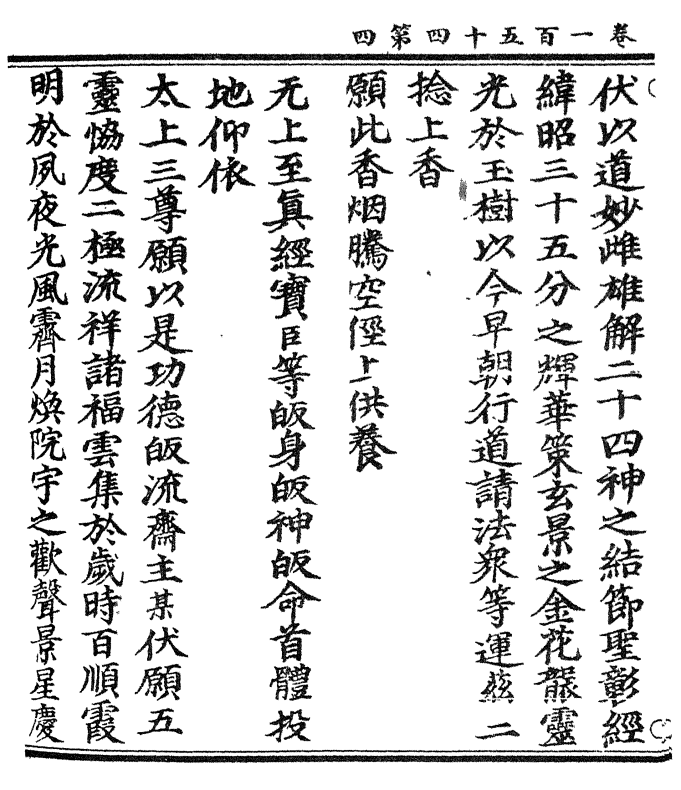 卷一百五十四第四
伏以道妙雌雄解二十四神之結節聖彰經
緯昭三十五分之輝華策玄景之金花嚴靈
光於玉樹以今早朝行道請法衆等運玆二
捻上香
願此香烟騰空徑上供養
无上至眞經寶臣等皈身皈神皈命首體投
地仰依
太上三尊願以是功德皈流齋主某伏願五
靈恊度二極流祥諸福雲集於歲時百順霞
明於夙夜光風霽月煥院宇之歡聲景星慶